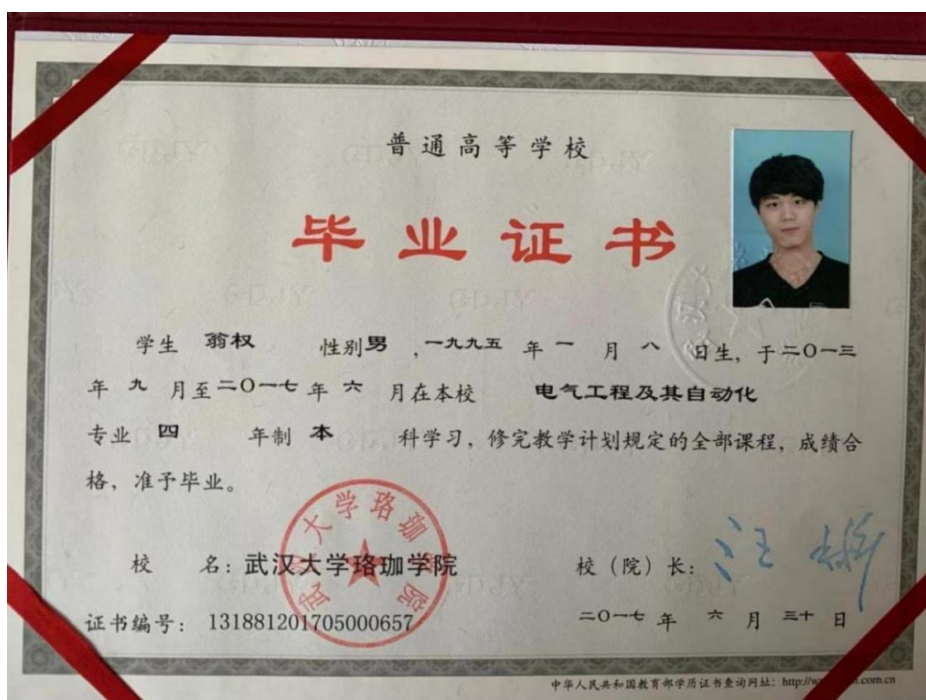 普通高等学校
毕业证书
学生 翁权 性别男 ,一九九五 年 一 月 八 日生，于二〇一三
年 九 月至二〇一七 年 六 月在本校 电气工程及其自动化
专业 四 年制 本 科学习，修完教学计划规定的全部课程，成绩合
格，准予毕业。
武汉大学珞珈学院
校 名：武汉大学珞珈学院 校（院）长：汪
证书编号：131881201705000657 二〇一七 年 六 月 三十 日
中华人民共和国教育部学历证书查询网址：http://